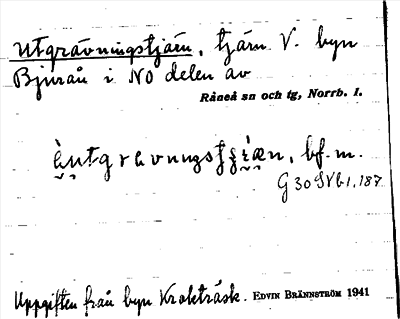 Utgrävningstjärn, tjärn V. byn
Bjurån i NO delen av
Råneå sn och tg, Norrb. l.
bf. m.
G 30 SNb 1, 187
Uppgiften från byn Krokträsk. EDVIN BRÄNNSTRÖM 1941